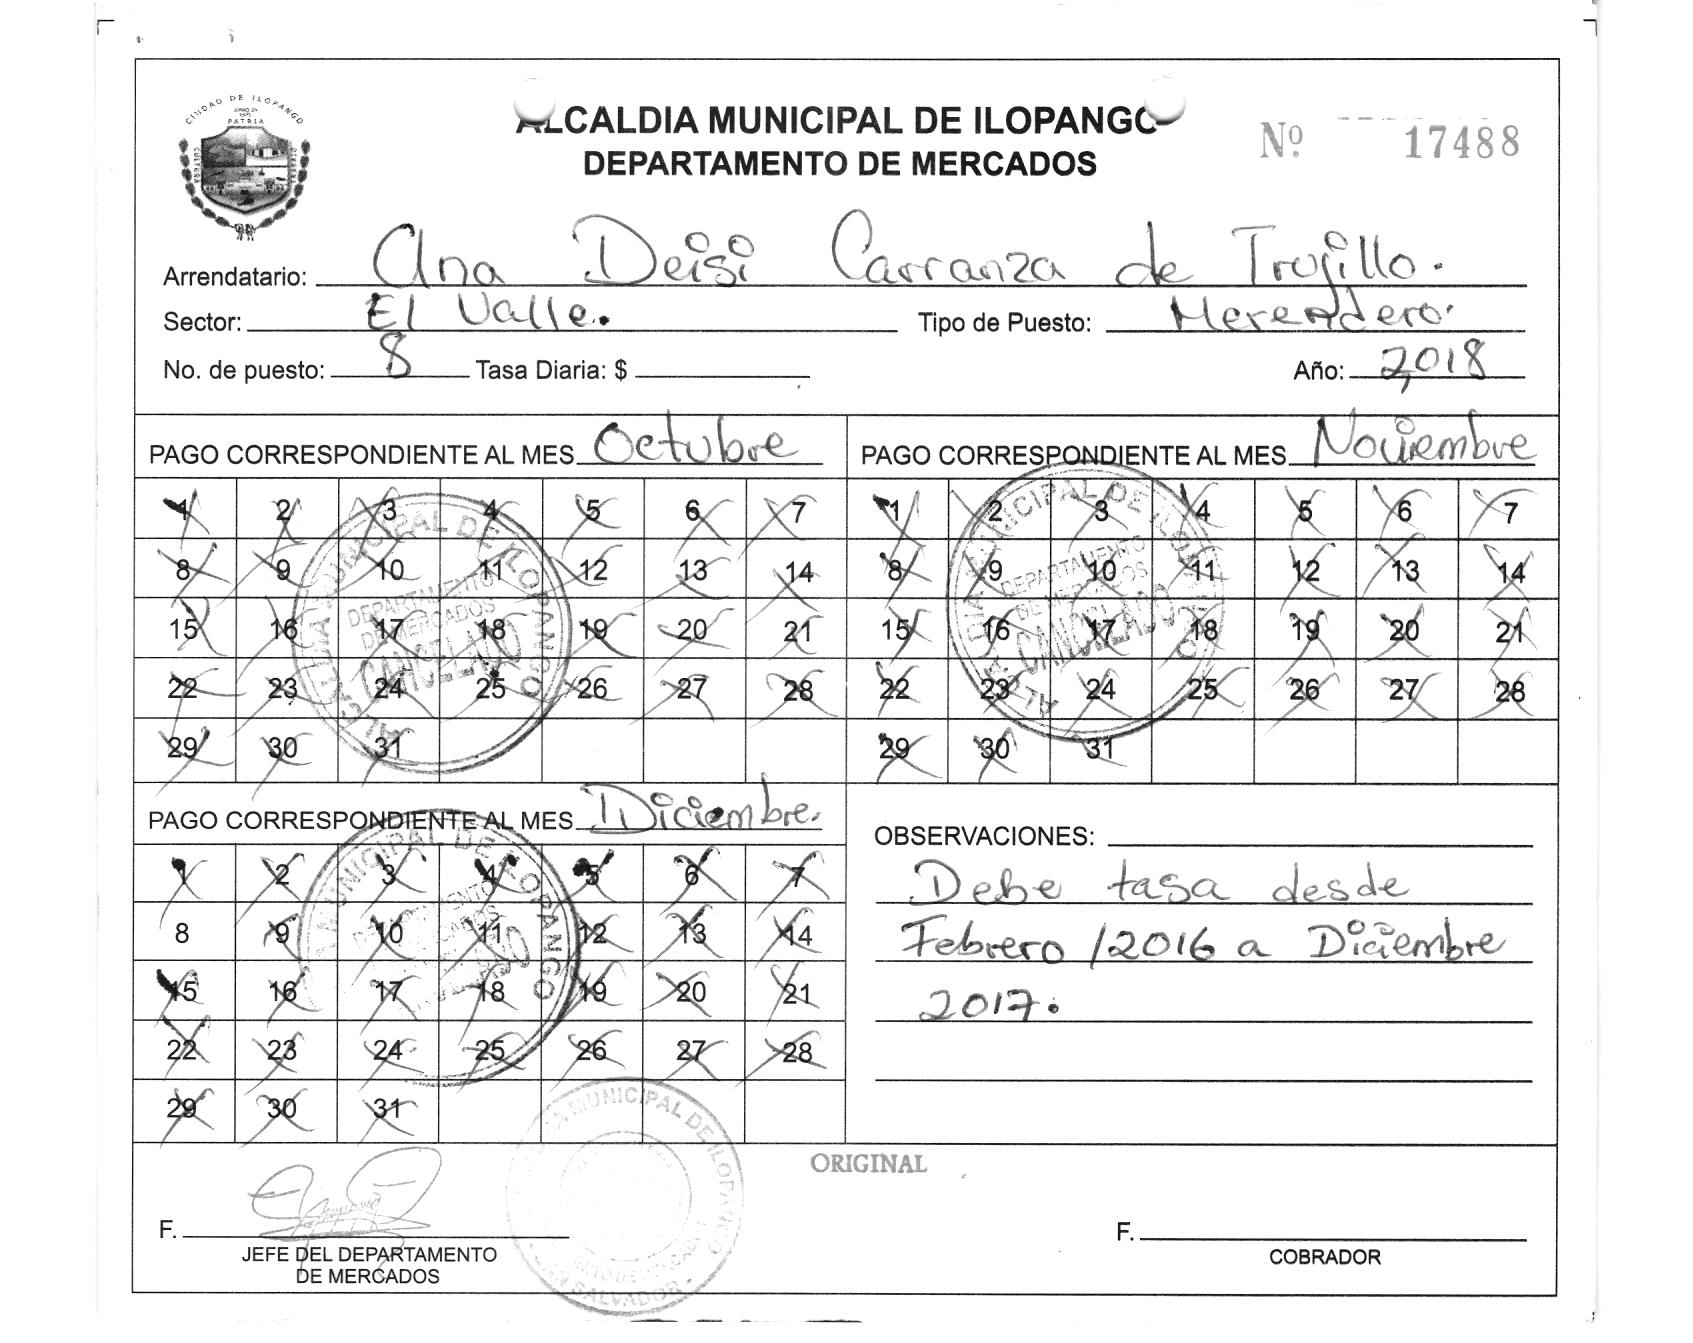 CIUDAD DE ILOPANGO
PATRIA
ALCALDIA MUNICIPAL DE ILOPANGO
DEPARTAMENTO DE MERCADOS
Nº 17488
Arrendatario: Ana Deisi Carranza de Trujillo.
Sector: El Valle. Tipo de Puesto: Merendero.
No. de puesto: 8 Tasa Diaria: $ Año: 2,018
PAGO CORRESPONDIENTE AL MES Octubre
1 2 3 4 5 6 7
8 9 10 11 12 13 14
15 16 17 18 19 20 21
22 23 24 25 26 27 28
29 30 31
ALCALDIA MUNICIPAL DE ILOPANGO
DEPARTAMENTO
DE MERCADOS
CANCELADO
PAGO CORRESPONDIENTE AL MES Noviembre
1 2 3 4 5 6 7
8 9 10 11 12 13 14
15 16 17 18 19 20 21
22 23 24 25 26 27 28
29 30 31
ALCALDIA MUNICIPAL DE ILOPANGO
DEPARTAMENTO
DE MERCADOS
CANCELADO
PAGO CORRESPONDIENTE AL MES Diciembre.
1 2 3 4 5 6 7
8 9 10 11 12 13 14
15 16 17 18 19 20 21
22 23 24 25 26 27 28
29 30 31
MUNICIPAL DE ILOPANGO
OBSERVACIONES:
Debe tasa desde
Febrero /2016 a Diciembre
2017.
ORIGINAL
MUNICIPAL DE ILOPANGO
SALVADOR
F.
JEFE DEL DEPARTAMENTO
DE MERCADOS
F.
COBRADOR